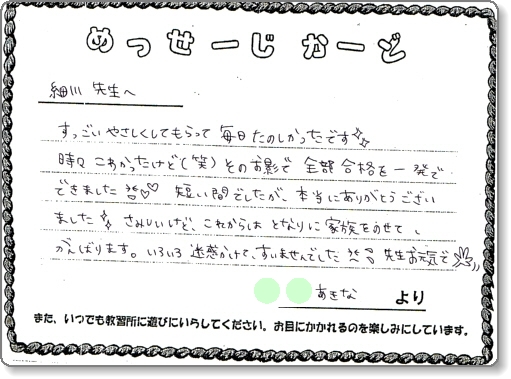 めっせーじかーど
細川 先生へ
すっごいやさしくしてもらって 毎日たのしかったです
時々 こわかったけど(笑) そのお影で 全部 合格を一発で
できました 短い間でしたが、本当にありがとうござい
ました さみしいけど、これからは となりに家族をのせて、
がんばります。いろいろ 迷惑かけて、すいませんでした 先生お元気で
あきな より
また、いつでも教習所に遊びにいらしてください。お目にかかれるのを楽しみにしています。